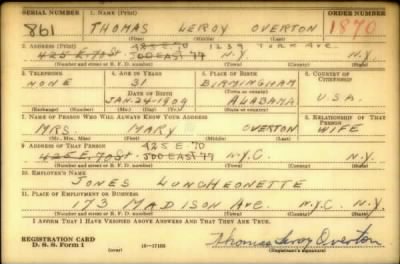 SERIAL NUMBER 1. NAME (Print) ORDER NUMBER
861 THOMAS LEROY OVERTON 1870
(First) (Middle) (Last)
2. ADDRESS (Print) 424 E-70 1239 YORK AVE.
425 E. 70 St 500 EAST 77 N.Y. N.Y.
(Number and street or R. F. D. number) (Town) (County) (State)
3. TELEPHONE 4. AGE IN YEARS 5. PLACE OF BIRTH 6. COUNTRY OF CITIZENSHIP
NONE 31 BIRMINGHAM
DATE OF BIRTH
JAN-24-1909 ALABAMA U.S.A.
(Exchange) (Number) (Mo.) (Day) (Yr.) (State or country)
7. NAME OF PERSON WHO WILL ALWAYS KNOW YOUR ADDRESS 8. RELATIONSHIP OF THAT PERSON
MRS. MARY OVERTON WIFE
(Mr., Mrs., Miss) (First) (Middle) (Last)
9. ADDRESS OF THAT PERSON 424 E-70
425 E. 70 St. 500 EAST 77 N.Y.C. N.Y.
(Number and street or R. F. D. number) (Town) (County) (State)
10. EMPLOYER'S NAME
JONES LUNCHEONETTE
11. PLACE OF EMPLOYMENT OR BUSINESS
173 MADISON AVE. N.Y.C. N.Y.
(Number and street or R. F. D. number) (Town) (County) (State)
I AFFIRM THAT I HAVE VERIFIED ABOVE ANSWERS AND THAT THEY ARE TRUE.
REGISTRATION CARD
D. S. S. Form 1 (over) 16—17105 Thomas Leroy Overton
(Registrant's signature)